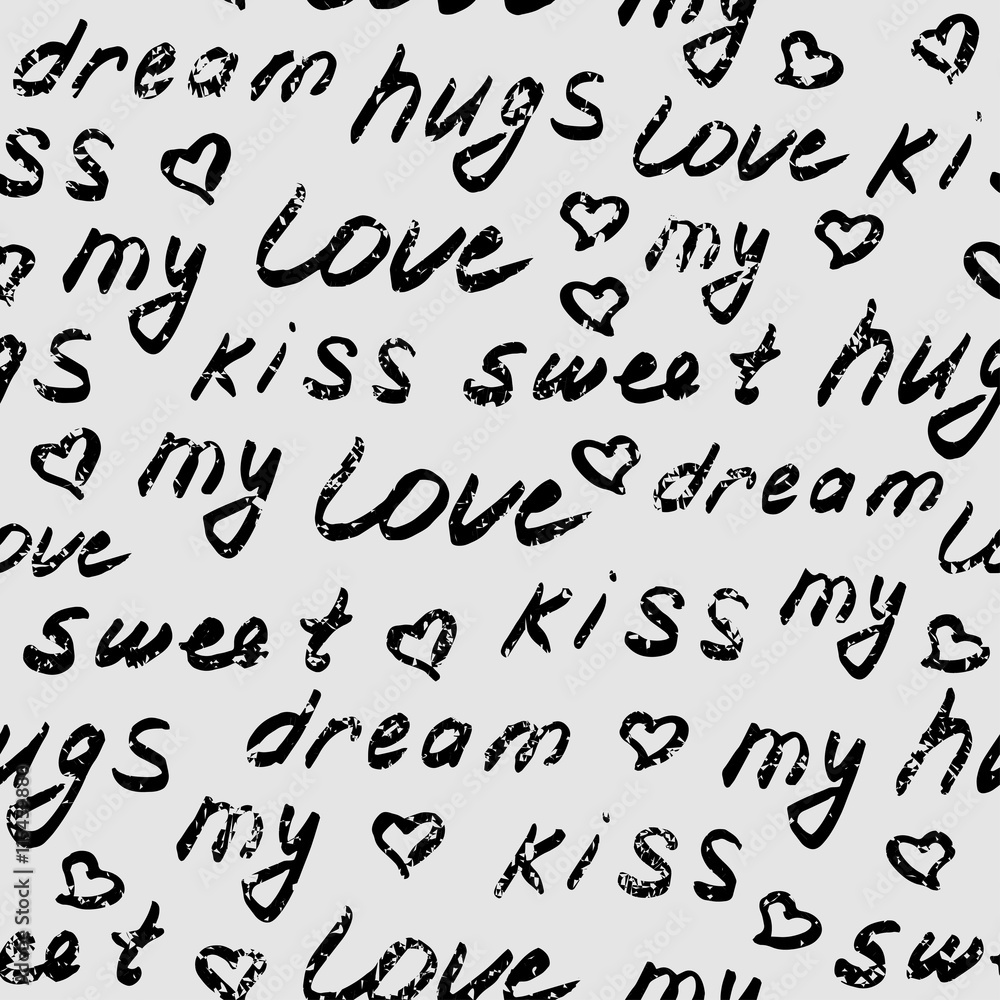 love my
dream hugs love ki
ss
my love my
gs kiss sweet hug
my love dream
ove
sweet kiss my
ugs dream my hu
my kiss
eet love my swee
Adobe Stock